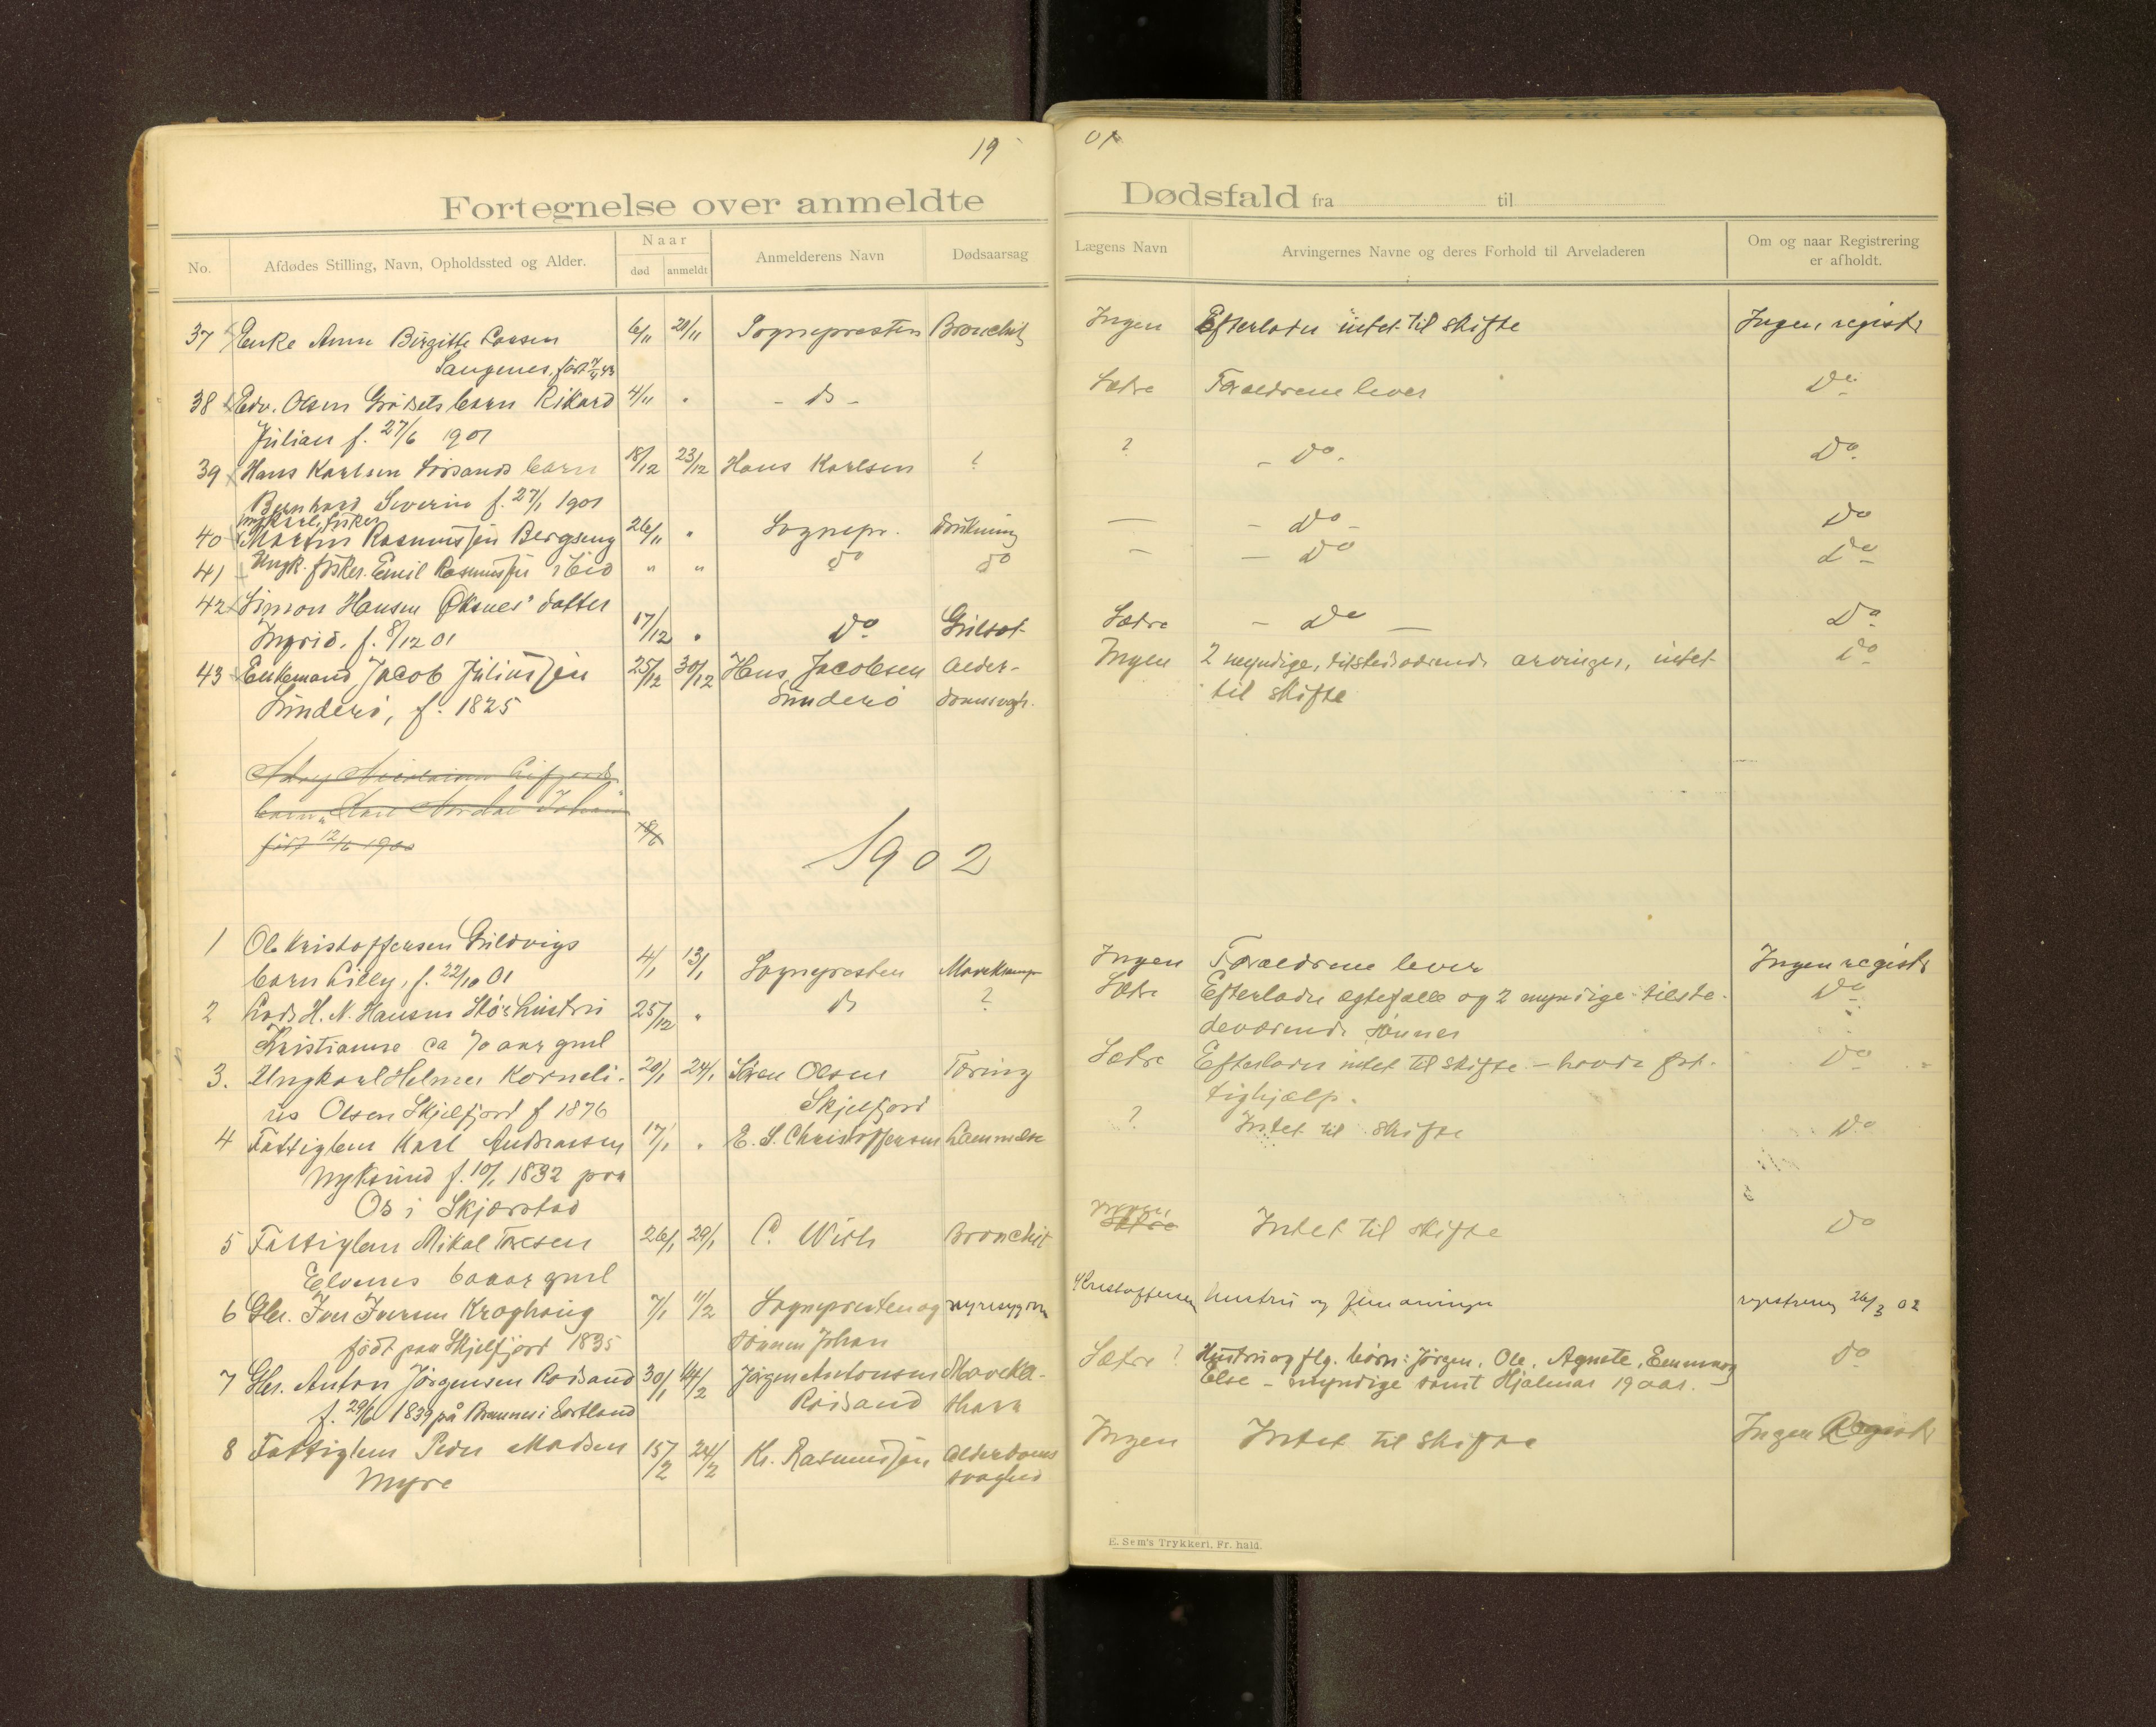 19
01
Fortegnelse over anmeldte
Dødsfald fra til
No.
Afdødes Stilling, Navn, Opholdssted og Alder.
Naar
død
anmeldt
Anmelderens Navn
Dødsaarsag
Lægens Navn
Arvingernes Navne og deres Forhold til Arveladeren
Om og naar Registrering
er afholdt.
37 Enke Anne Birgitte Larsen 6/11 20/11 Sognepresten Bronchit Ingen Efterlader intet til skifte Ingen registr
Langenes, født
38 Edv. Olsen barn Rikard 4/11 " - do - Sætre Forældrene lever Do
Julian f. 27/6 1901
39 Hans Karlsen barn 18/12 23/12 Hans Karlsen ? ? - Do - Do
Bernhard Severin f. 27/1 1901
ungkarl, fisker
40 Martin Rasmussen Bergseng 26/11 " Sognepr. drukning — - Do - Do
41 Ungk. fisker Emil Rasmussen ibid " " do do — - Do Do
42 Simon Hansen Øksnes' datter
Ingrid, f. 8/12 01 17/12 " Do Gulsot Sætre - Do — Do
43 Enkemand Jacob Juliussen 25/12 30/12 Hans Jacobsen Alder- Ingen 2 myndige, tilstedeværende arvinger, intet Do
Tinderø, f. 1825 Tinderø domssvagh. til skifte
barn
født 12/6 1900
1902
1 Ole Kristoffersen Guldvigs
barn Lilly, f. 22/10 01 4/1 13/1 Sognepresten Mavekrampe Ingen Forældrene lever Ingen registr
2 Lods H. N. Hansen Stø's hustru 25/12 " do ? Sætre Efterlader ægtefælle og 2 myndige tilste- Do
Kristianne ca 70 aar gml deværende sønner
3. Ungkarl Helmer Korneli- 20/1 24/1 Søren Olsen Tæring Sætre Efterlader intet til skifte - havde fat- Do
us Olsen Skjelfjord f 1876 Skjelfjord tighjælp.
4 Fattiglem Karl Andreassen 17/1 " E. S. Christoffersen Lammelse ? Intet til skifte Do
Nyksund f. 10/1 1832 paa
Os i Skjærstad
5 Fattiglem Mikal Toresen 26/1 29/1 C. Wish Bronchit Intet til skifte Do
Elvenes 60 aar gml
6 Gbr. Iver Iversen Kroghaug 7/1 11/2 Sognepresten og nyresygdom Kristoffersen hustru og fem arvinger registrering 26/3 02
født paa Skjelfjord 1835 sønnen Johan
7 Gbr. Anton Jörgensen Roisand 30/1 14/2 Jörgen Antonsen Maveka- Sætre ? Hustru og flg. börn: Jörgen, Ole, Agnete, Emma og Do
f. 29/6 1839 på Brennes i Sortland Roisand tharr Else - myndige samt Hjalmar 19 aar.
8 Fattiglem Peder Madsen 15/2 24/2 Kr. Rasmussen Alderdoms Ingen Intet til skifte Ingen Registr
Myre svaghed
E. Sem's Trykkeri, Fr. hald.